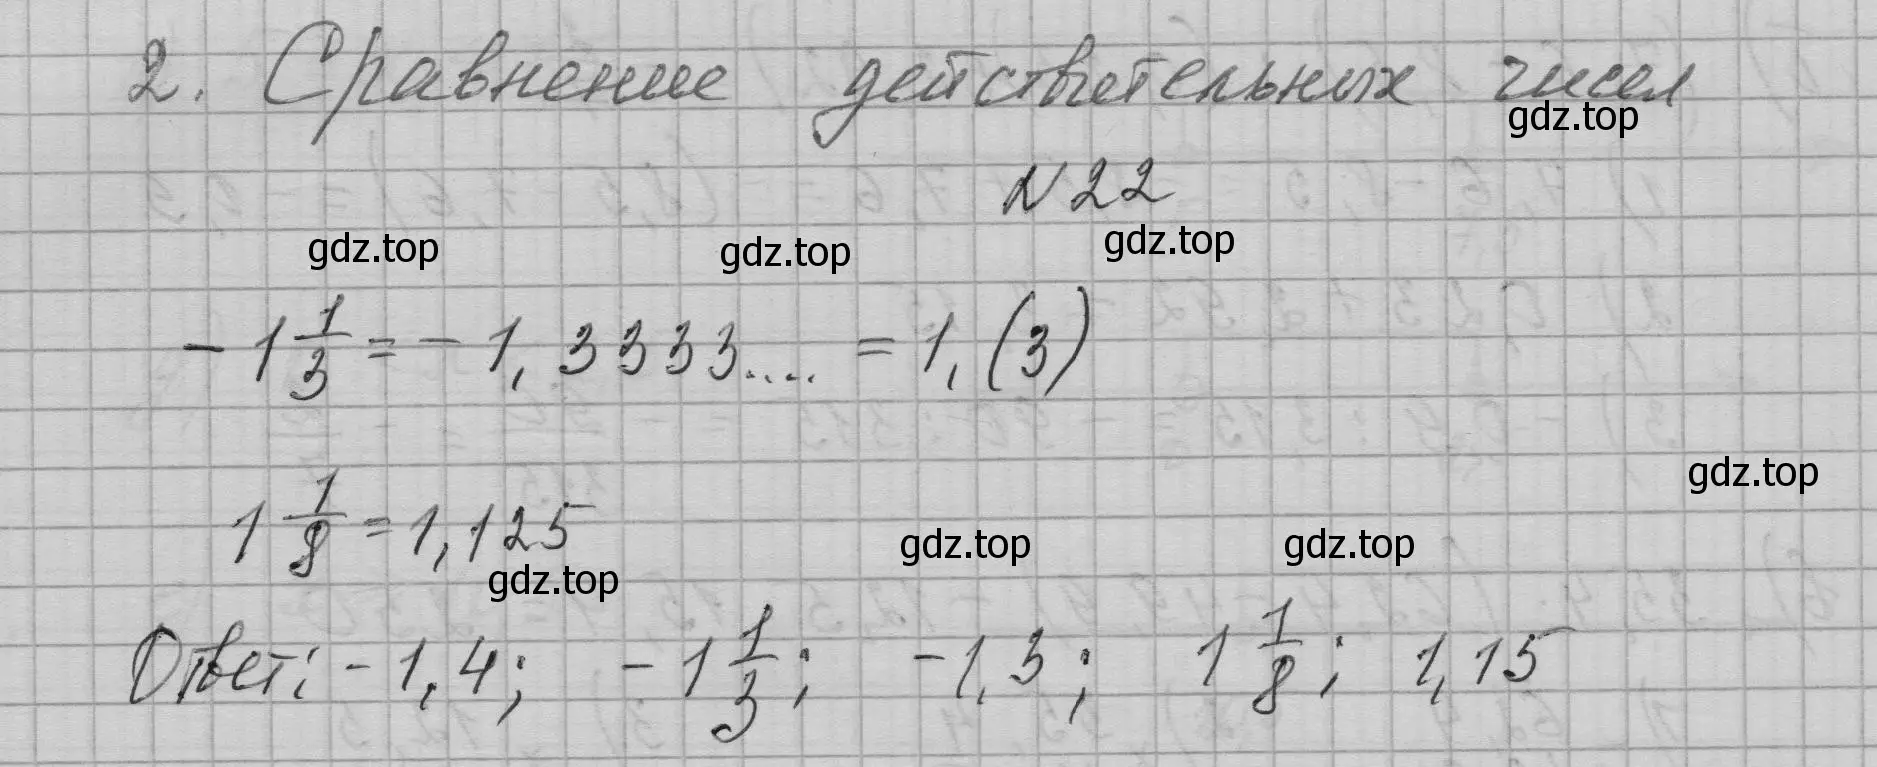 2. Сравнение действительных чисел
gdz.top
N 22
gdz.top gdz.top gdz.top
- 1 1/3 = - 1, 3333.... = 1, (3)
gdz.top
1 1/8 = 1, 125
gdz.top gdz.top gdz.top
Ответ: - 1,4; - 1 1/3; - 1,3; 1 1/8; 1,15